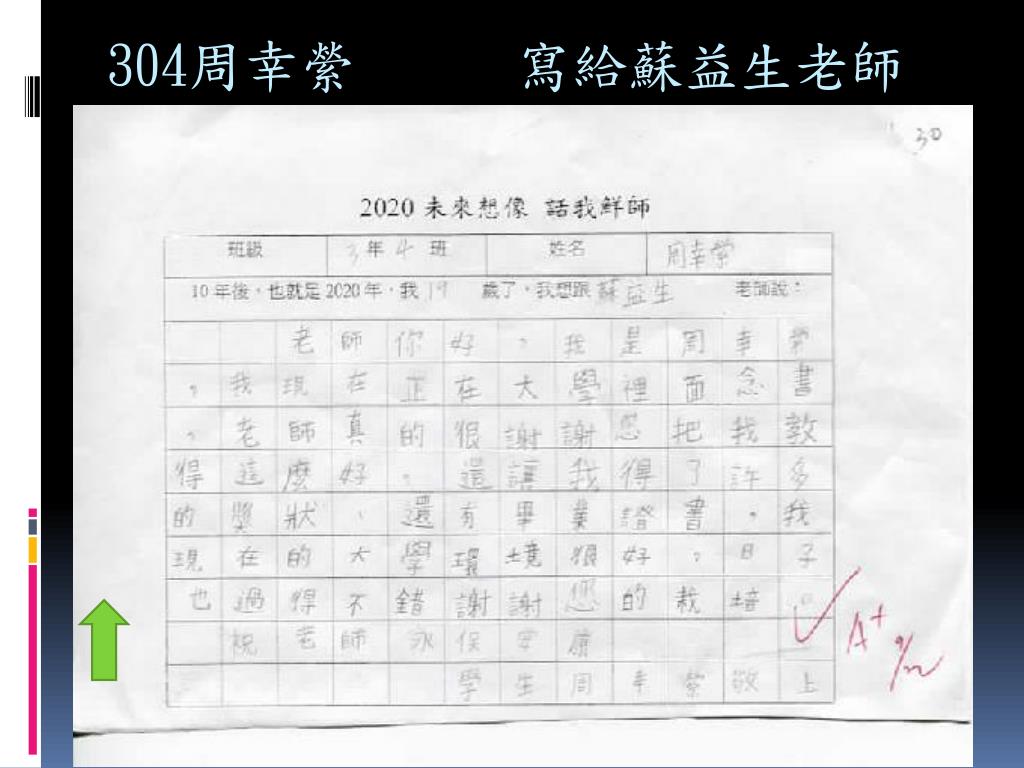 304周幸縈 寫給蘇益生老師
30
2020 未來想像 話我鮮師
班級 3 年 4 班 姓名 周幸縈
10 年後，也就是 2020 年，我 19 歲了，我想跟 蘇益生 老師說：
老師你好，我是周幸縈
，我現在正在大學裡面念書
，老師真的很謝謝您把我教
得這麼好。還讓我得了許多
的獎狀、還有畢業證書。我
現在的大學環境很好，日子
也過得不錯謝謝您的栽培。
祝老師永保安康
學生周幸縈敬上
A+